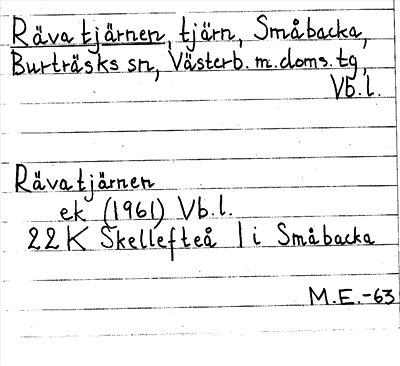 Räva tjärnen, tjärn, Småbacka,
Burträsks sn, Västerb. m. doms. tg,
Vb. l.
Rävatjärnen
ek (1961) Vb. l.
22 K Skellefteå 1 i Småbacka
M.E.-63